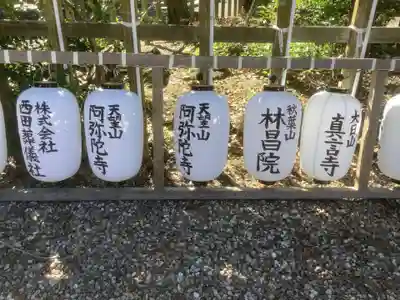 株式会社
西田葬儀社
天望山
阿弥陀寺
天望山
阿弥陀寺
秋葉山
林昌院
大日山
真言寺